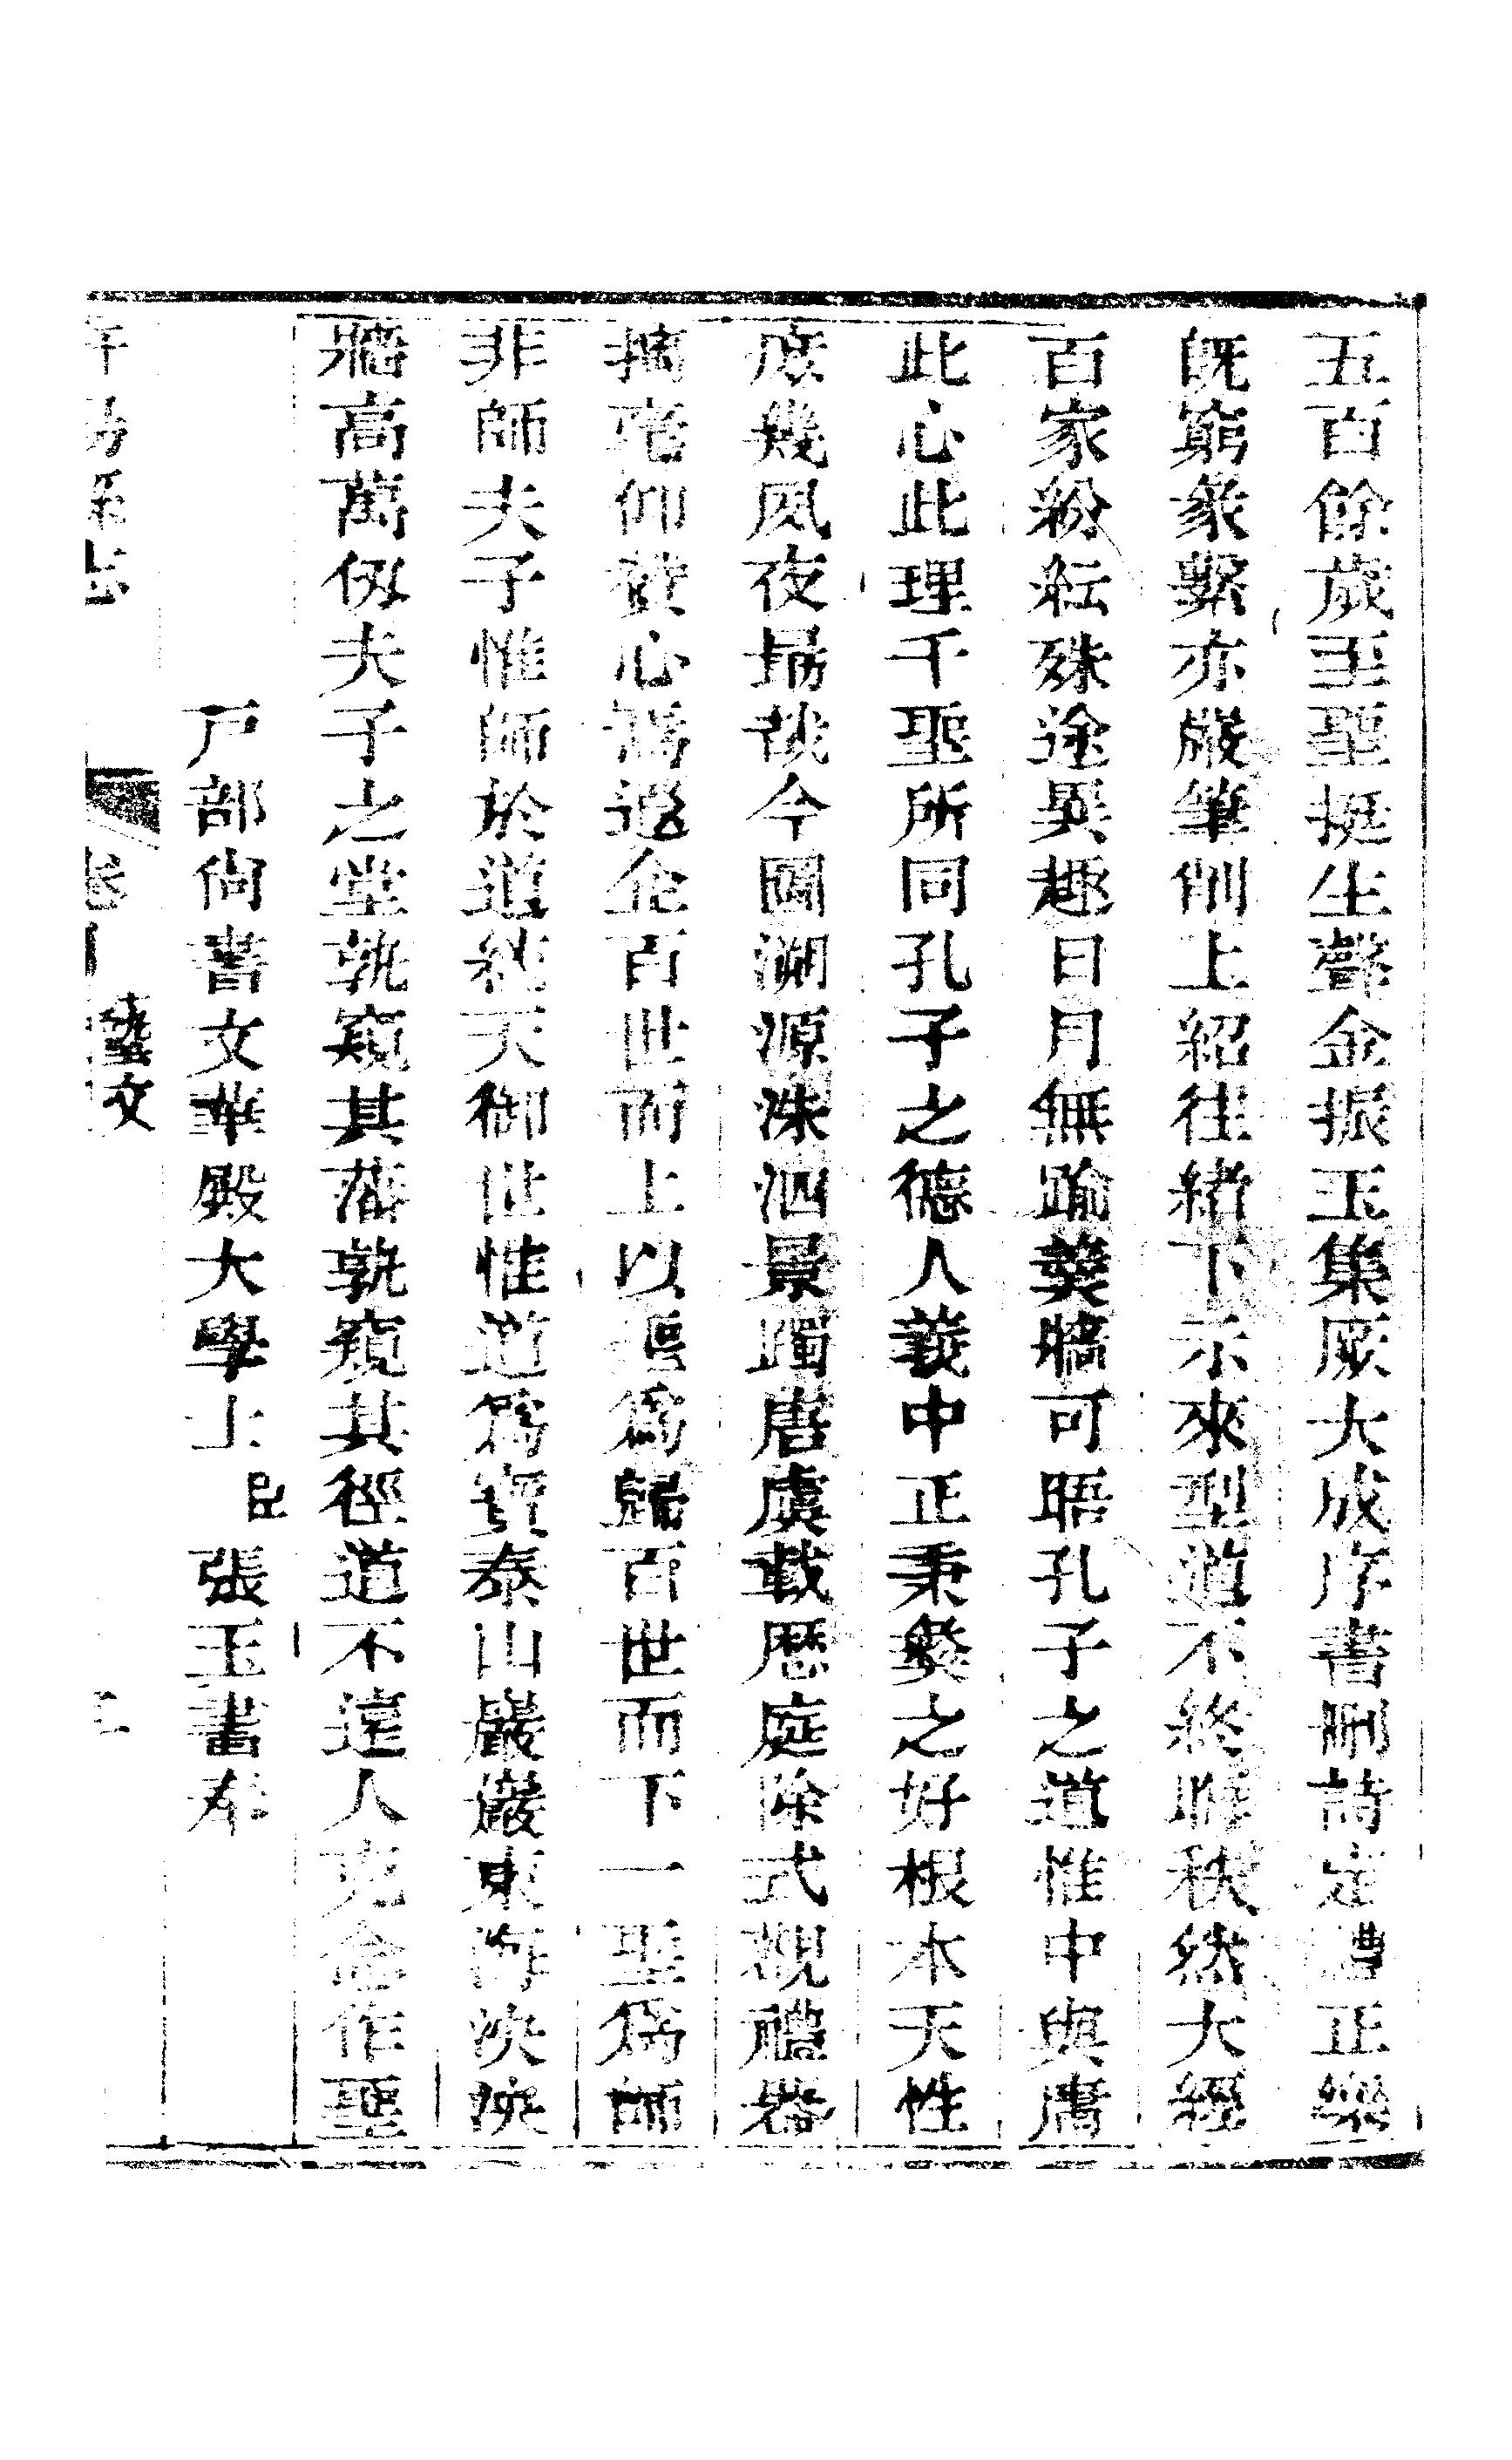 五百餘歲至聖挺生聲金振玉集厥大成序書刪詩定禮正樂
旣窮彖繫亦嚴筆削上紹往緒下示來型道不終晦秩然大經
百家紛紜殊途異趣日月無踰羹牆可晤孔子之道惟中與庸
此心此理千聖所同孔子之德仁義中正秉彝之好根本天性
庶幾夙夜勗哉今圖溯源洙泗景躅唐虞載歷庭除式觀禮器
摛毫仰贊心焉遐企百世而上以聖爲歸百世而下以聖爲師
非師夫子惟師於道統天御世惟道爲寶泰山巖巖東海泱泱
牆高萬仞夫子之堂孰窺其藩孰窺其徑道不遠人克念作聖
戶部尚書文華殿大學士臣張玉書奉
卷 藝文